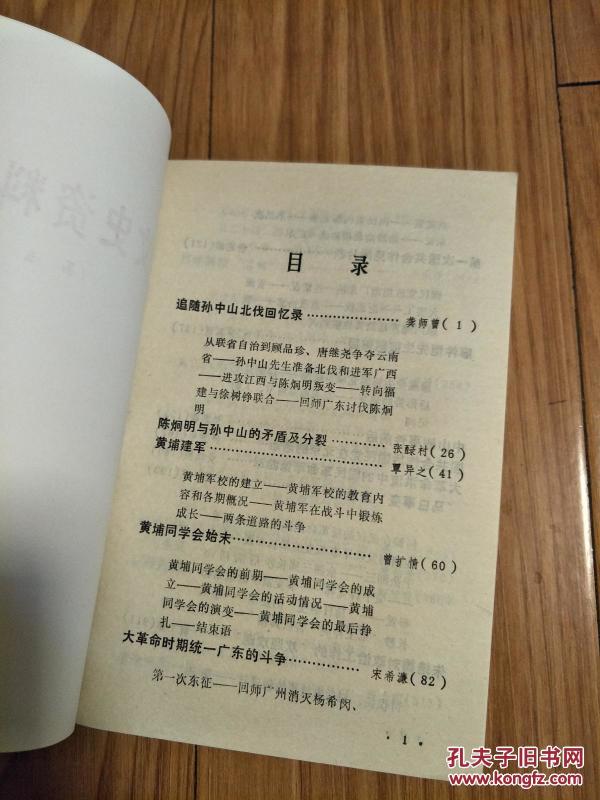 史资料
目录
追随孙中山北伐回忆录……………………龚师曾(1)
从联省自治到顾品珍、唐继尧争夺云南
省——孙中山先生准备北伐和进军广西
——进攻江西与陈炯明叛变——转向福
建与徐树铮联合——回师广东讨伐陈炯
明
陈炯明与孙中山的矛盾及分裂…………张醁村(26)
黄埔建军……………………………………覃异之(41)
黄埔军校的建立——黄埔军校的教育内
容和各期概况——黄埔军在战斗中锻炼
成长——两条道路的斗争
黄埔同学会始末……………………………曾扩情(60)
黄埔同学会的前期——黄埔同学会的成
立——黄埔同学会的活动情况——黄埔
同学会的演变——黄埔同学会的最后挣
扎——结束语
大革命时期统一广东的斗争……………宋希濂(82)
第一次东征——回师广州消灭杨希闵、
·1·
孔夫子旧书网
www.kongfz.com